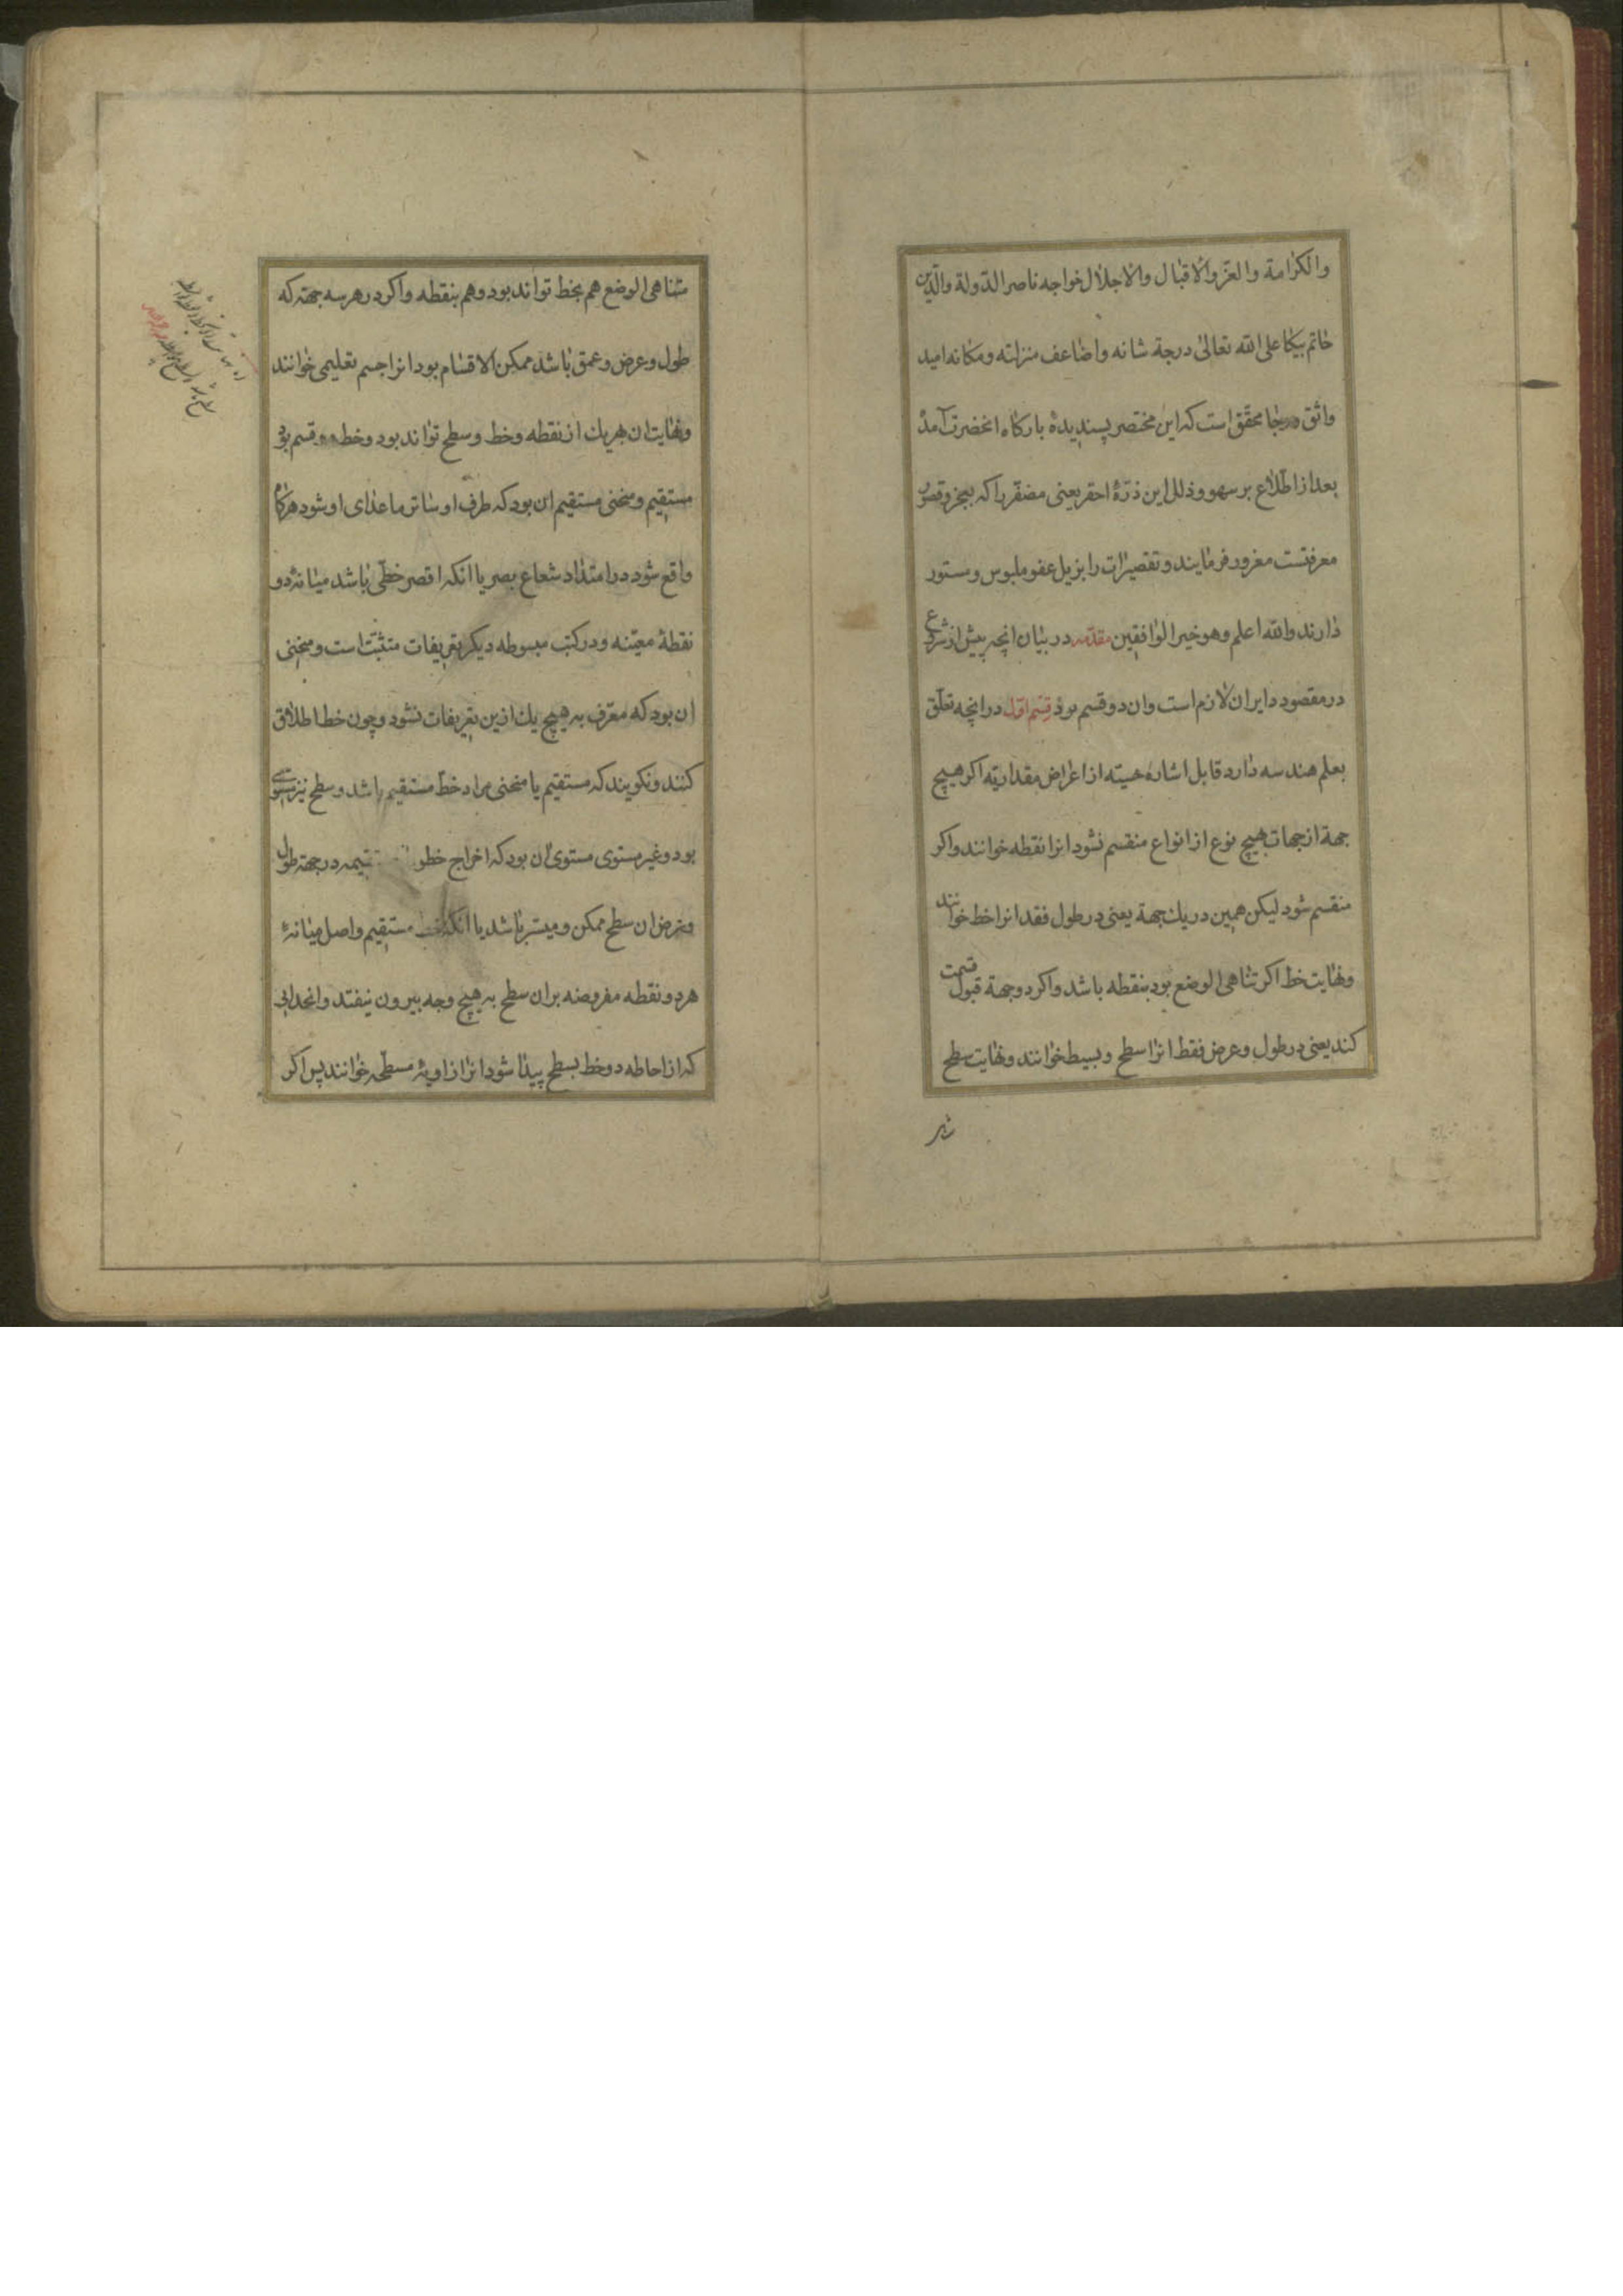 والكرامة والعز والاقبال والاجلال خواجه ناصر الدولة والدين
خاتم بيكا على الله تعالى درجة شانه واضاعف منزلته ومكانه اميد
واثق ورجا محقق است كه اين مختصر پسنديدۀ باركاه انحضرت آمدۀ
بعد از اطلاع بر سهو وذلل اين ذرۀ احقر يعنى مضفر را كه بعجز وقصور
معرفتست مغرور فرمايند وتقصيرات را بزيل عفو ملبوس ومستور
دارند والله اعلم وهو خير الوافقين مقدمه در بيان انچه پيش از شروع
در مقصود دايران لازم است وان دو قسم بود قسم اول در انچه تعلق
بعلم هندسه دارد قابل اشاره حسيته از اعراض مقداريته اكر هيچ
جهة از جهات بهيچ نوع از انواع منقسم نشود انرا نقطه خوانند واكر
منقسم شود ليكن همين در يك جهة يعنى در طول فقد انرا خط خوانند
ونهايت خط اكر تناهى الوضع بود بنقطه باشد واكر دو جهة قبول قسمت
كند يعنى در طول وعرض فقط انرا سطح وبسيط خوانند ونهايت سطح
متناهى الوضع هم بخط تواند بود وهم بنقطه واكر در هر سه جهته كه
طول وعرض وعمق باشد ممكن الاقسام بود انرا جسم تعليمى خوانند
ونهايت ان بهريك از نقطه وخط وسطح تواند بود وخط دو قسم بود
مستقيم ومنحنى مستقيم ان بود كه طرف او ساتر ما عداى او شود هركاه
واقع شود در امتداد شعاع بصر يا انكه اقصر خطى باشد ميانۀ دو
نقطۀ معينه ودر كتب مبسوطه ديكر تعريفات مثبت است ومنحنى
ان بود كه معرف به هيچ يك ازين تعريفات نشود وچون خط اطلاق
كنند ونكويند كه مستقيم يا منحنى مراد خط مستقيم باشد وسطح نيز مستوى
بود وغير مستوى مستوى ان بود كه اخراج خطو تقيمه در جهته طول
وعرض ان سطح ممكن وميسر باشد يا انكه خط مستقيم واصل ميانۀ
هر دو نقطه مفروضه بران سطح به هيچ وجه بيرون نيفتد وانحدابى
كه از احاطه دو خط بسطح پيدا شود انرا زاويۀ مسطحه خوانند پس اكر